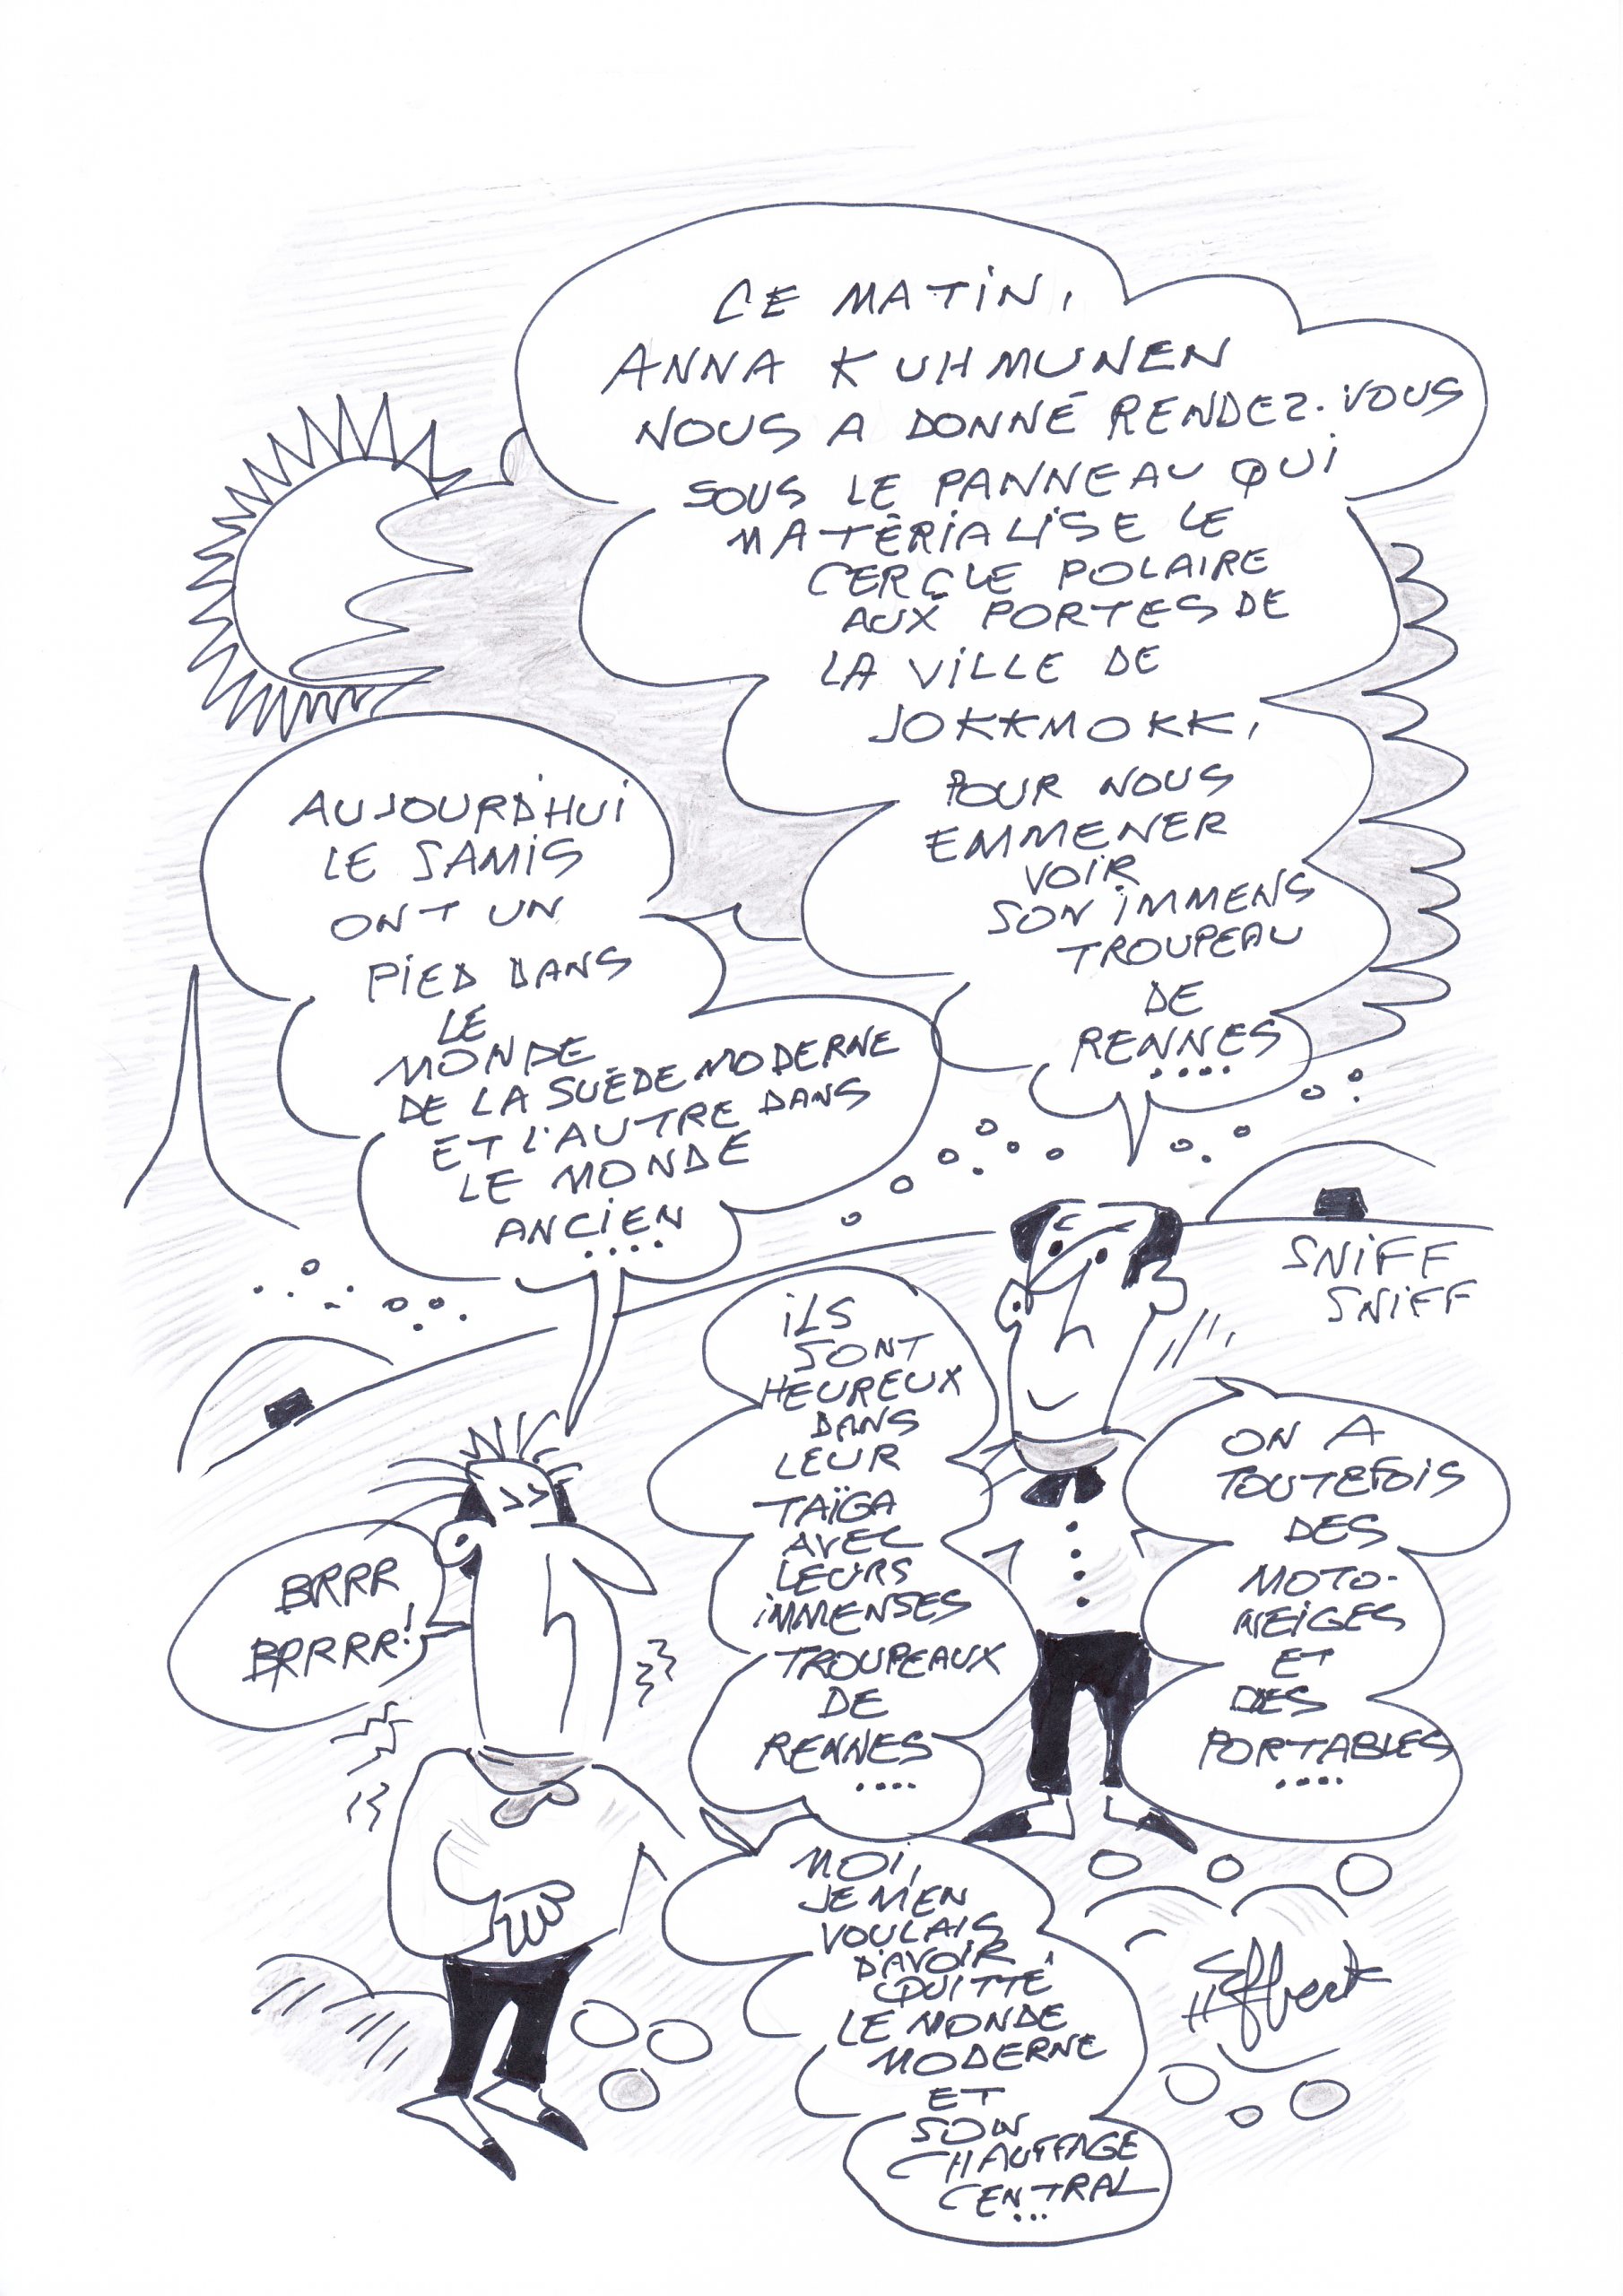 CE MATIN,
ANNA KUHMUNEN
NOUS A DONNÉ RENDEZ-VOUS
SOUS LE PANNEAU QUI
MATÉRIALISE LE
CERCLE POLAIRE
AUX PORTES DE
LA VILLE DE
JOKKMOKK,
POUR NOUS
EMMENER
VOIR
SON IMMENS
TROUPEAU
DE
RENNES
....
AUJOURD'HUI
LE SAMIS
ONT UN
PIED DANS
LE
MONDE
DE LA SUÈDE MODERNE
ET L'AUTRE DANS
LE MONDE
ANCIEN
....
SNIFF
SNIFF
ILS
SONT
HEUREUX
DANS
LEUR
TAÏGA
AVEC
LEURS
IMMENSES
TROUPEAUX
DE
RENNES
....
ON A
TOUTEFOIS
DES
MOTO-
NEIGES
ET
DES
PORTABLES
....
BRRR
BRRRR!
MOI,
JE M'EN
VOULAIS
D'AVOIR
QUITTÉ
LE MONDE
MODERNE
ET
SON
CHAUFFAGE
CENTRAL
...